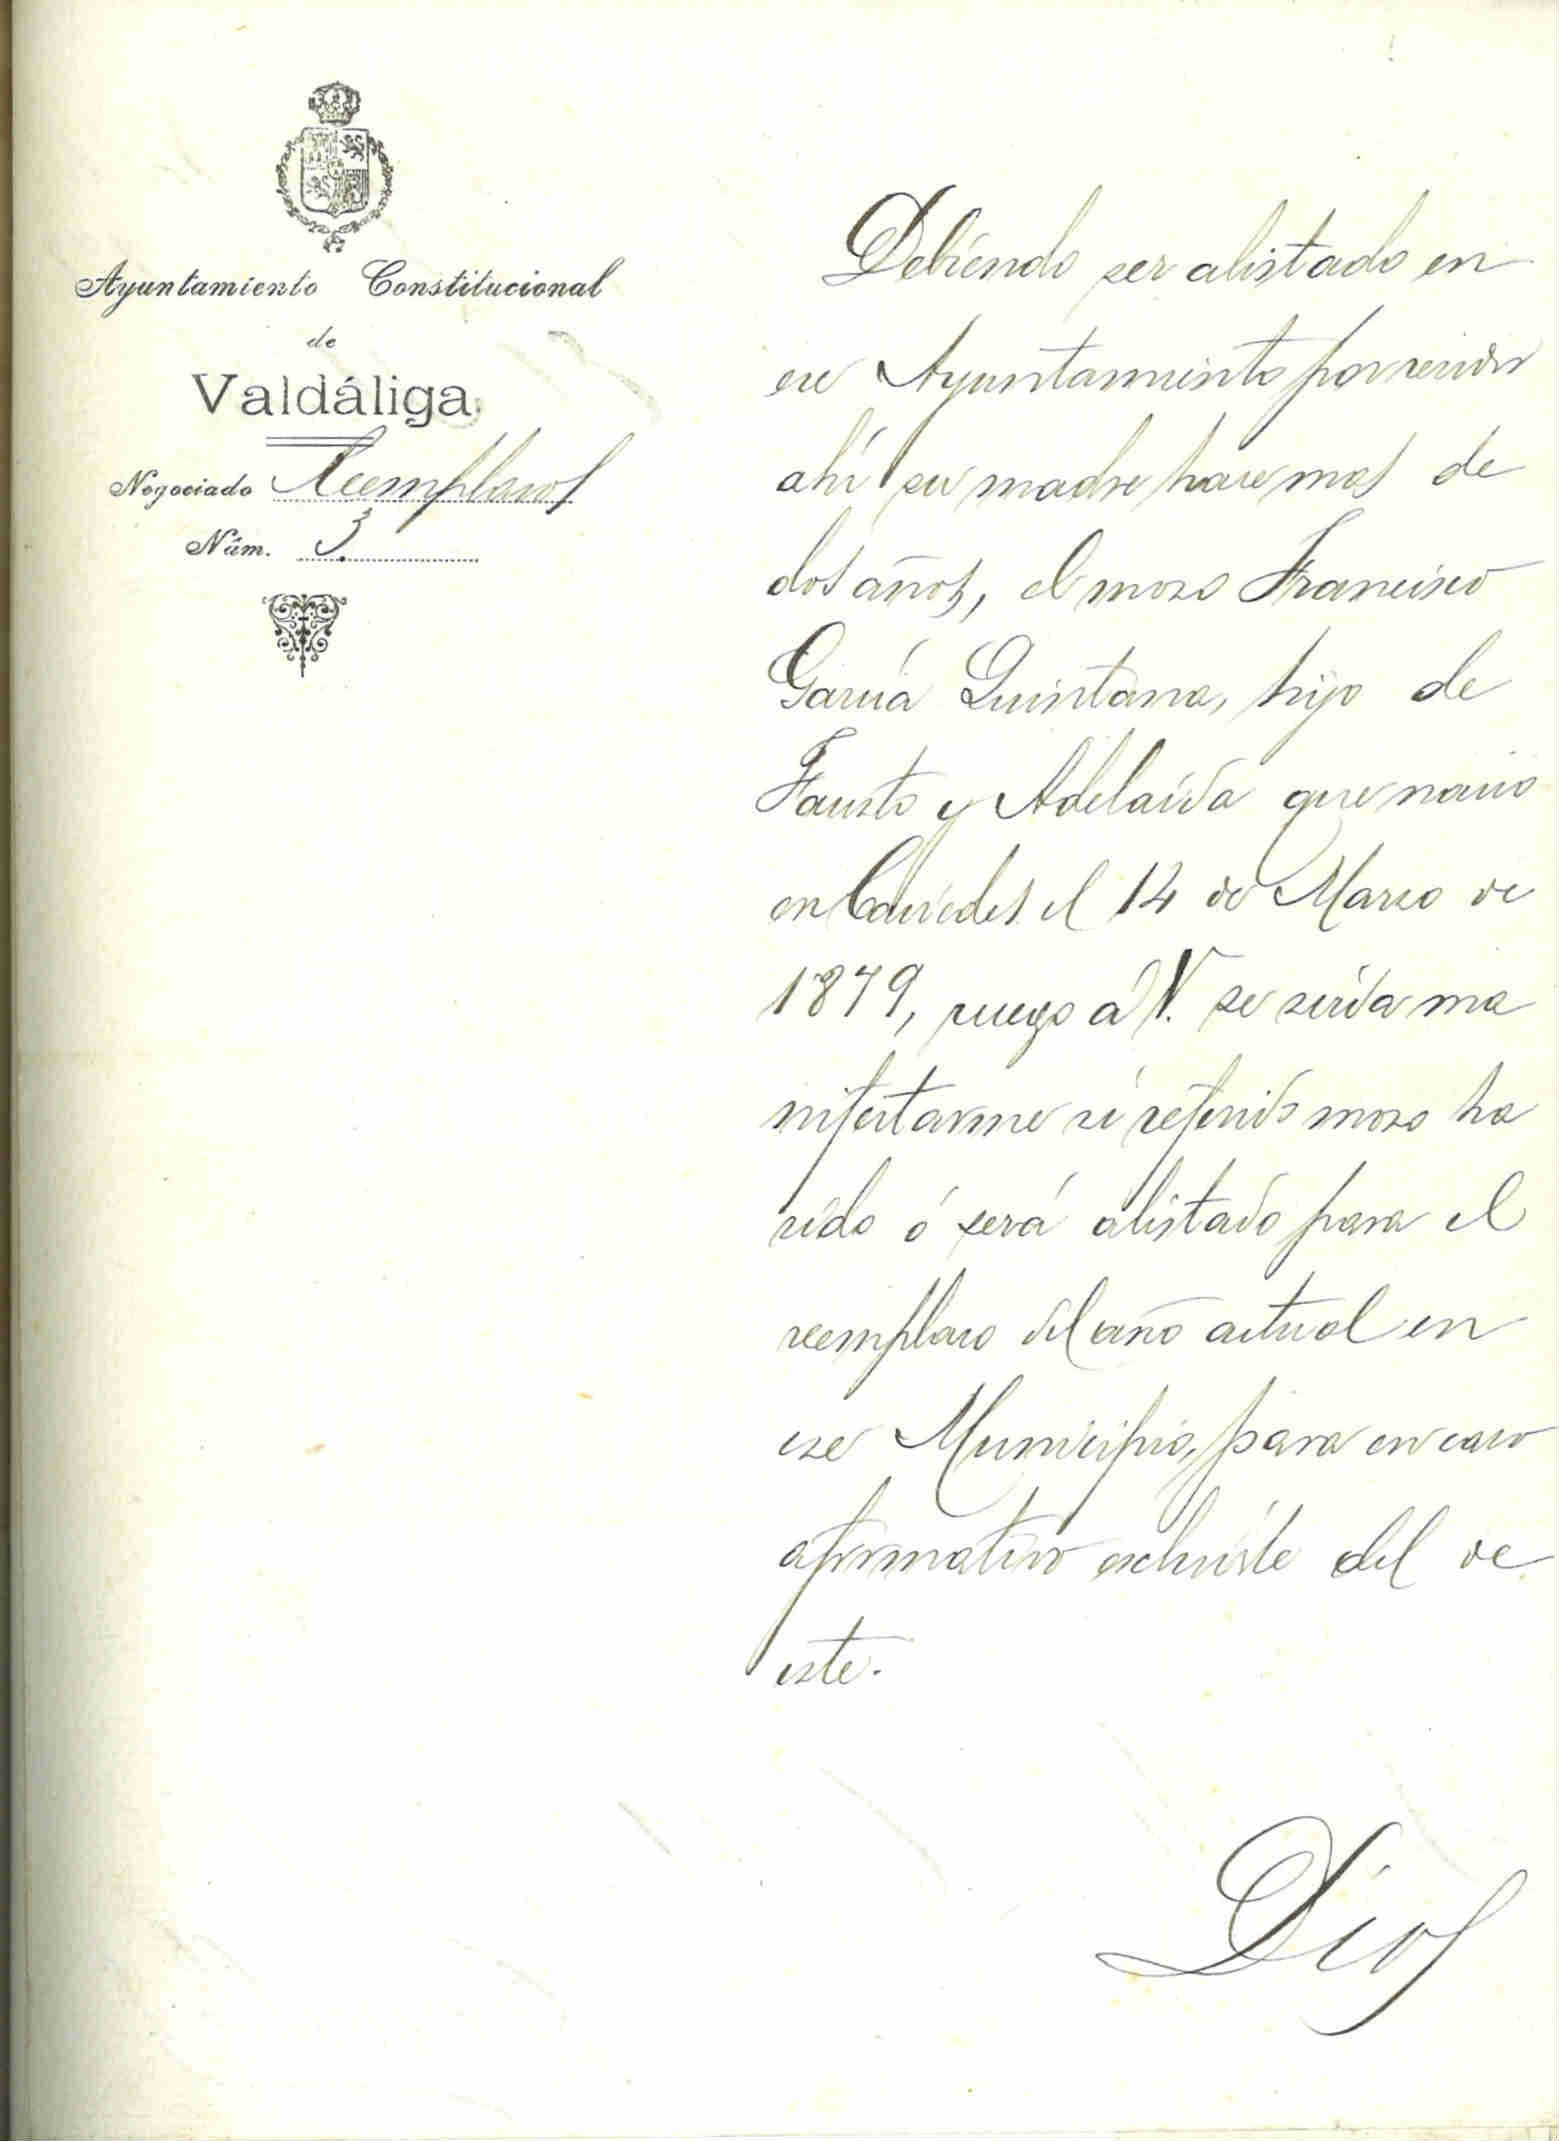 Ayuntamiento Constitucional
de
Valdáliga.
Negociado Reemplazos
Núm. 3.
Debiendo ser alistado en
ese Ayuntamiento por residir
ahí su madre hace mas de
dos años, el mozo Francisco
García Quintana, hijo de
Fausto y Adelaida que nació
en Caviedes el 14 de Marzo de
1879, ruego a V. se sirva ma
nifestarme si referido mozo ha
sido ó será alistado para el
reemplazo del año actual en
ese Municipio, para en caso
afirmativo excluirle del de
este.
Dios